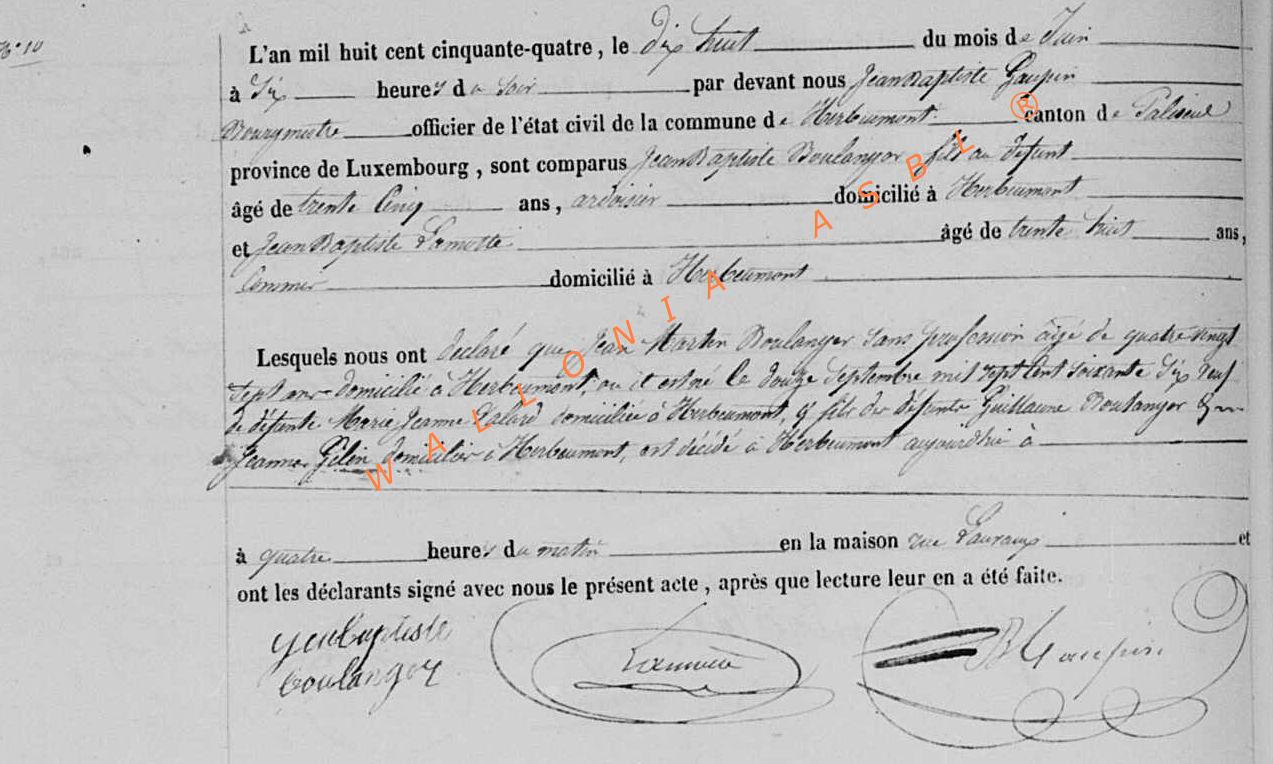 N° 10
L'an mil huit cent cinquante-quatre, le dix huit du mois de Juin
à Six heures du soir par devant nous Jean Baptiste Gaupin
Bourgmestre officier de l'état civil de la commune de Herbeumont canton de Paliseul
province de Luxembourg, sont comparus Jean Baptiste Boulanger fils au défunt
âgé de trente Cinq ans, ardoisier domicilié à Herbeumont
et Jean Baptiste Lamotte âgé de trente huit ans,
domicilié à Herbeumont
Lesquels nous ont déclaré que Jean Martin Boulanger sans profession âgé de quatre vingt
sept ans domicilié à Herbeumont, où il est né le douze Septembre mil sept cent soixante Six veuf
de défunte Marie Jeanne domiciliée à Herbeumont, & fils des défunts Guillaume Boulanger &
Jeanne Gélin domiciliés à Herbeumont, est décédé à Herbeumont aujourdhui à
à quatre heures du matin en la maison rue et
ont les déclarants signé avec nous le présent acte, après que lecture leur en a été faite.
jeanbaptiste
boulanger
JB Gaupin
WALLONIA ASBL ®